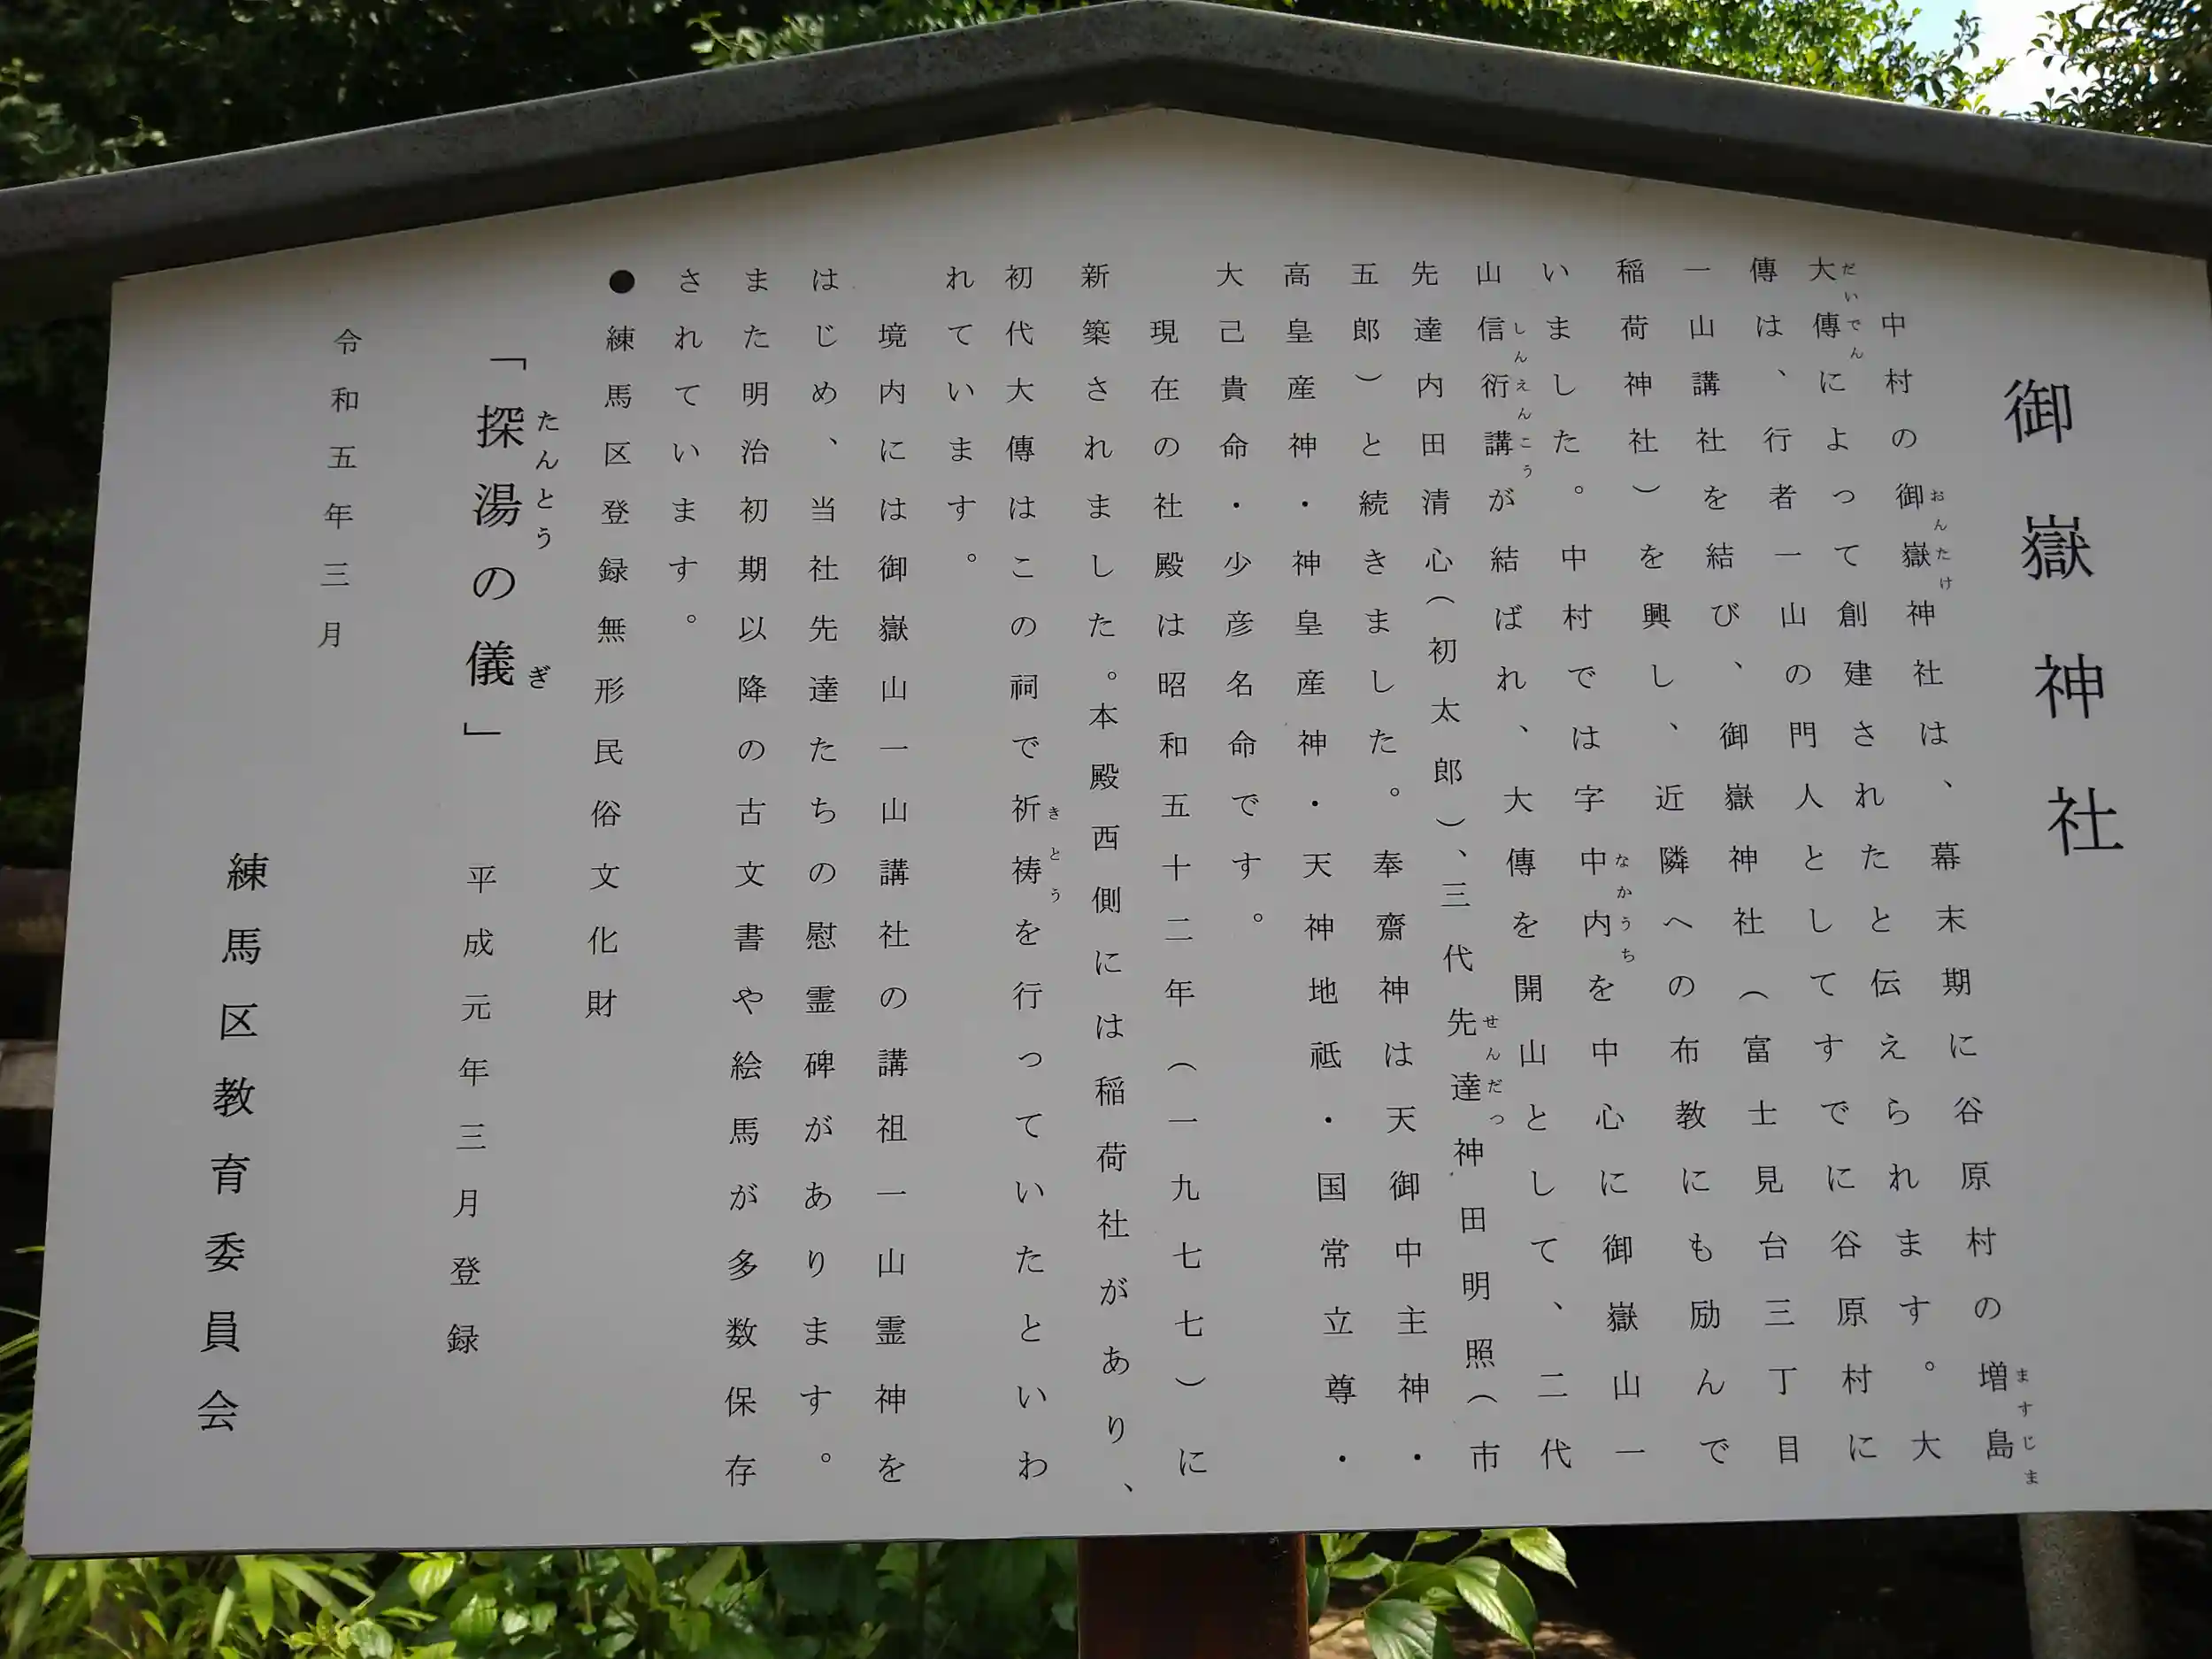 御嶽神社
中村の御嶽神社は、幕末期に谷原村の増島
大傳によって創建されたと伝えられます。大
傳は、行者一山の門人としてすでに谷原村に
一山講社を結び、御嶽神社（富士見台三丁目
稲荷神社）を興し、近隣への布教にも励んで
いました。中村では字中内を中心に御嶽山一
山信衍講が結ばれ、大傳を開山として、二代
先達内田清心（初太郎）、三代先達神田明照（市
五郎）と続きました。奉齋神は天御中主神・
高皇産神・神皇産神・天神地祗・国常立尊・
大己貴命・少彦名命です。
現在の社殿は昭和五十二年（一九七七）に
新築されました。本殿西側には稲荷社があり、
初代大傳はこの祠で祈祷を行っていたといわ
れています。
境内には御嶽山一山講社の講祖一山霊神を
はじめ、当社先達たちの慰霊碑があります。
また明治初期以降の古文書や絵馬が多数保存
されています。
●練馬区登録無形民俗文化財
「探湯の儀」 平成元年三月登録
令和五年三月
練馬区教育委員会
おんたけ
ますじま
だいでん
なかうち
しんえんこう
せんだつ
きとう
たんとう ぎ